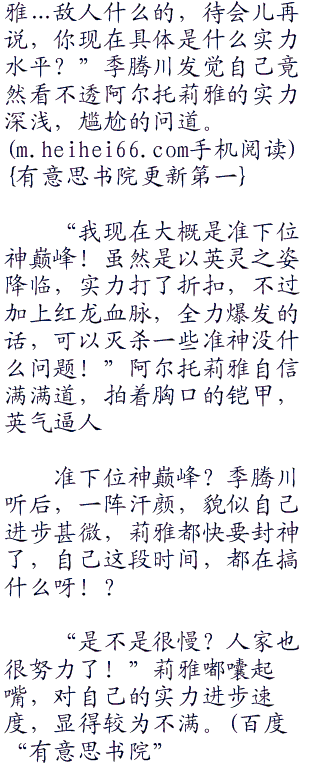 雅…敌人什么的，待会儿再
说，你现在具体是什么实力
水平？”季腾川发觉自己竟
然看不透阿尔托莉雅的实力
深浅，尴尬的问道。
(m.heihei66.com手机阅读)
{有意思书院更新第一}
“我现在大概是准下位
神巅峰！虽然是以英灵之姿
降临，实力打了折扣，不过
加上红龙血脉，全力爆发的
话，可以灭杀一些准神没什
么问题！”阿尔托莉雅自信
满满道，拍着胸口的铠甲，
英气逼人
准下位神巅峰？季腾川
听后，一阵汗颜，貌似自己
进步甚微，莉雅都快要封神
了，自己这段时间，都在搞
什么呀！？
“是不是很慢？人家也
很努力了！”莉雅嘟囔起
嘴，对自己的实力进步速
度，显得较为不满。(百度
“有意思书院”